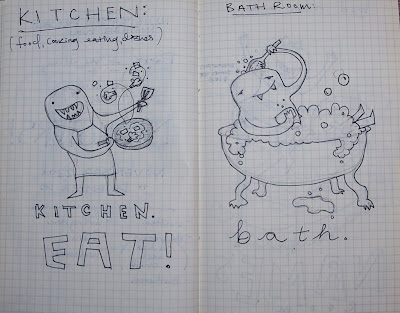 KITCHEN:
(food, cooking eating &
KITCHEN.
EAT!
BATH ROOM:
bath.